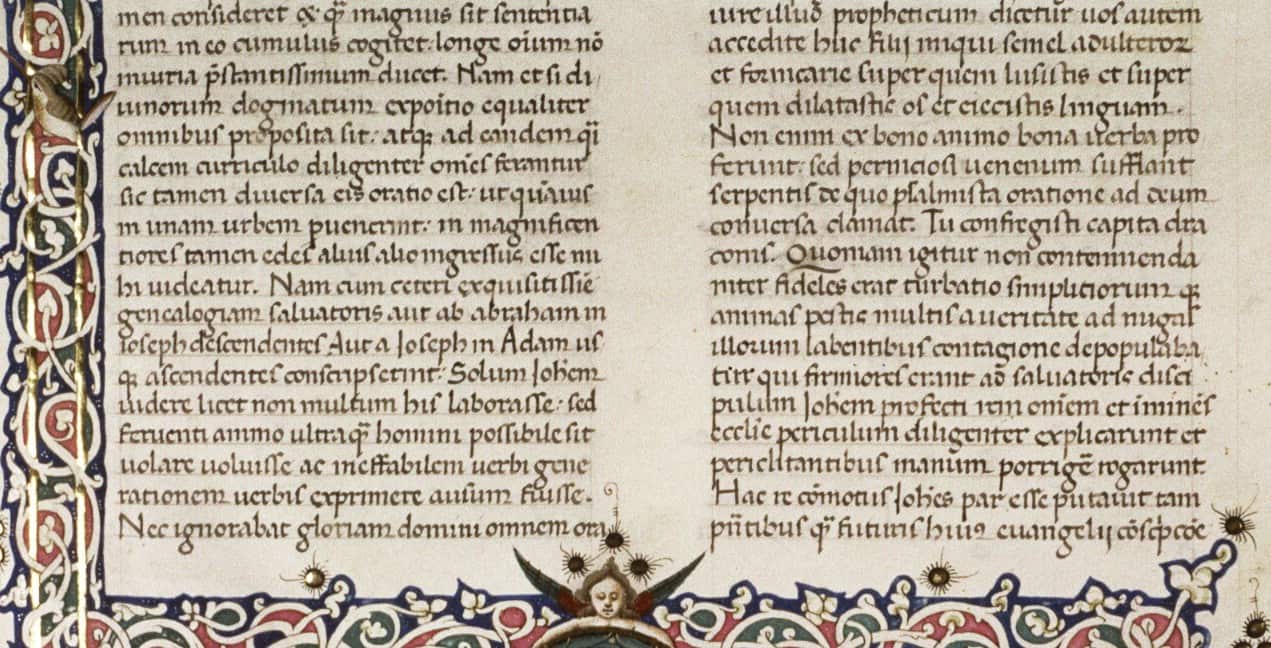 men consideret & q̃ magnus sit sententia
rum in eo cumulus cogitet: longe oĩum nõ
iniuria p̃stantissimum ducet. Nam et si di
uinorum dogmatum expoitio equaliter
omnibus proposita sit: atq; ad eandem q̃i
calcem curriculo diligenter om̃es ferantur
sic tamen diuersa eis oratio est: ut quãuis
in unam urbem puenerint: in magnificen
tiores tamen edes alius alio ingressus esse mi
hi uideatur. Nam cum ceteri exquisitissiẽ
genealogiam saluatoris aut ab abraham in
ioseph descendentes Aut a Ioseph in Adam us
q; ascendentes conscripserint: Solum Ioh̃em
uidere licet non multum his laborasse: sed
feruenti animo ultra q̃ homini possibile sit
uolare uoluisse ac ineffabilem uerbi gene
rationem uerbis exprimere ausum fuisse.
Nec ignorabat gloriam domini omnem ora
iure illud propheticum dicetur uos autem
accedite huc filij iniqui semel adulteroꝝ
et fornicarie super quem lusistis et super
quem dilatastis os et eiecistis linguam.
Non enim ex bono animo bona uerba pro
ferunt: sed perniciosi uenenum sufflant
serpentis de quo psalmista oratione ad deum
conuersa clamat. Tu confregisti capita dra
conis. Quoniam igitur non contemnenda
niter fideles erat turbatio simplitiorum q;
animas pestis multis a ueritate ad nugas
illorum labentibus contagione depopulaba
tur qui firmiores erant ad saluatoris disci
pulum Ioh̃em profecti rem om̃em et iminẽs
ecclie periculum diligenter explicarunt et
periclitantibus manum porrigẽ rogarunt
Hac re cõmotus Ioh̃es par esse putauit tam
pñtibus q̃ futuris huiꝰ euangelij cõscp̃cõe